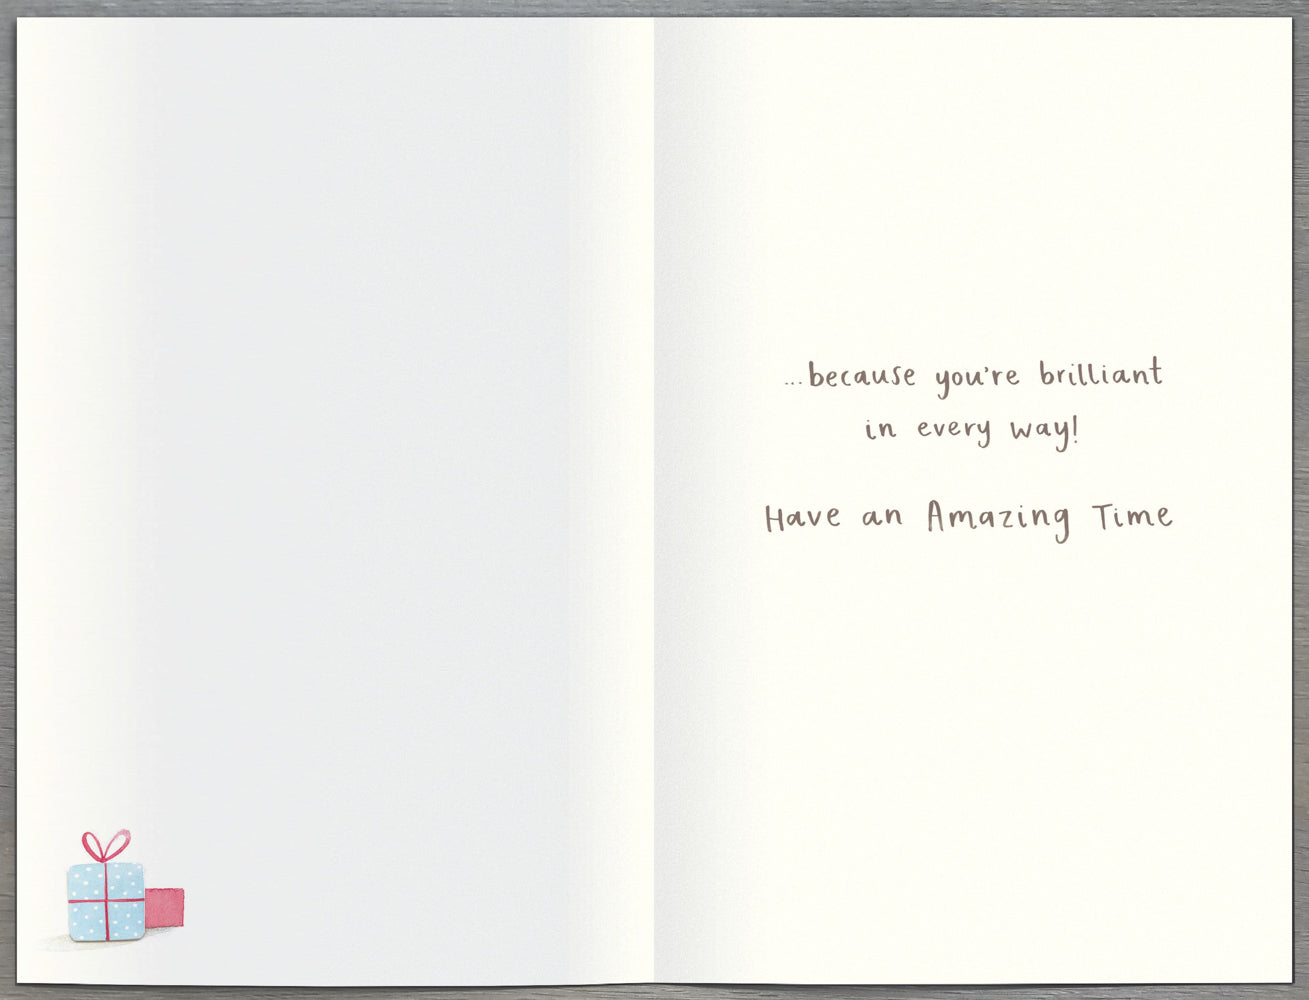 ...because you're brilliant
in every way!
Have an Amazing Time